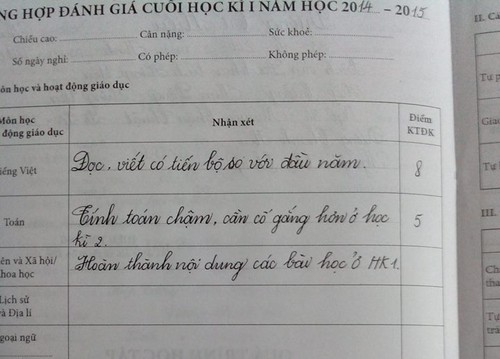 NG HỢP ĐÁNH GIÁ CUỐI HỌC KÌ I NĂM HỌC 2014 - 2015
II. Cá
Chiều cao: Cân nặng: Sức khoẻ:
Số ngày nghỉ: Có phép: Không phép:
Tự p
ôn học và hoạt động giáo dục
Môn học
động giáo dục
Nhận xét
Điểm
KTĐK
Giao
iếng Việt
Đọc, viết có tiến bộ so với đầu năm.
8
Tự
Toán
Tính toán chậm, cần cố gắng hơn ở học
kì 2.
5
III.
ên và Xã hội/
hoa học
Hoàn thành nội dung các bài học ở HK1.
Ch
tha
Lịch sử
à Địa lí
Tự
trá
goại ngữ